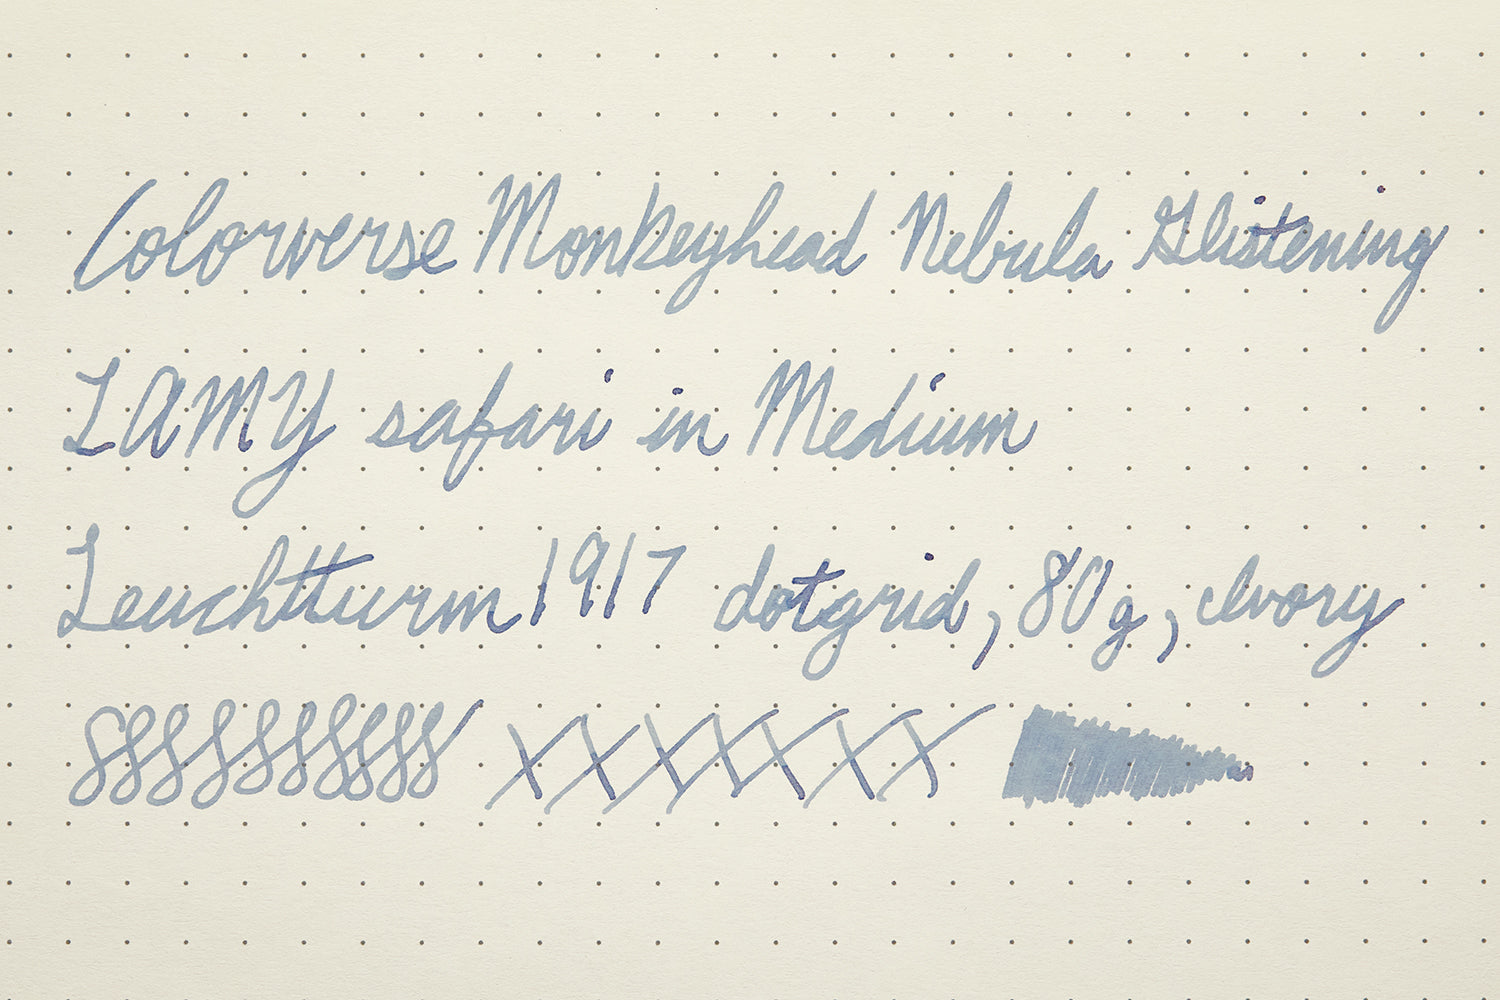 Colorverse Monkeyhead Nebula Glistening
LAMY safari in Medium
Leuchtturm1917 dotgrid, 80g, Ivory